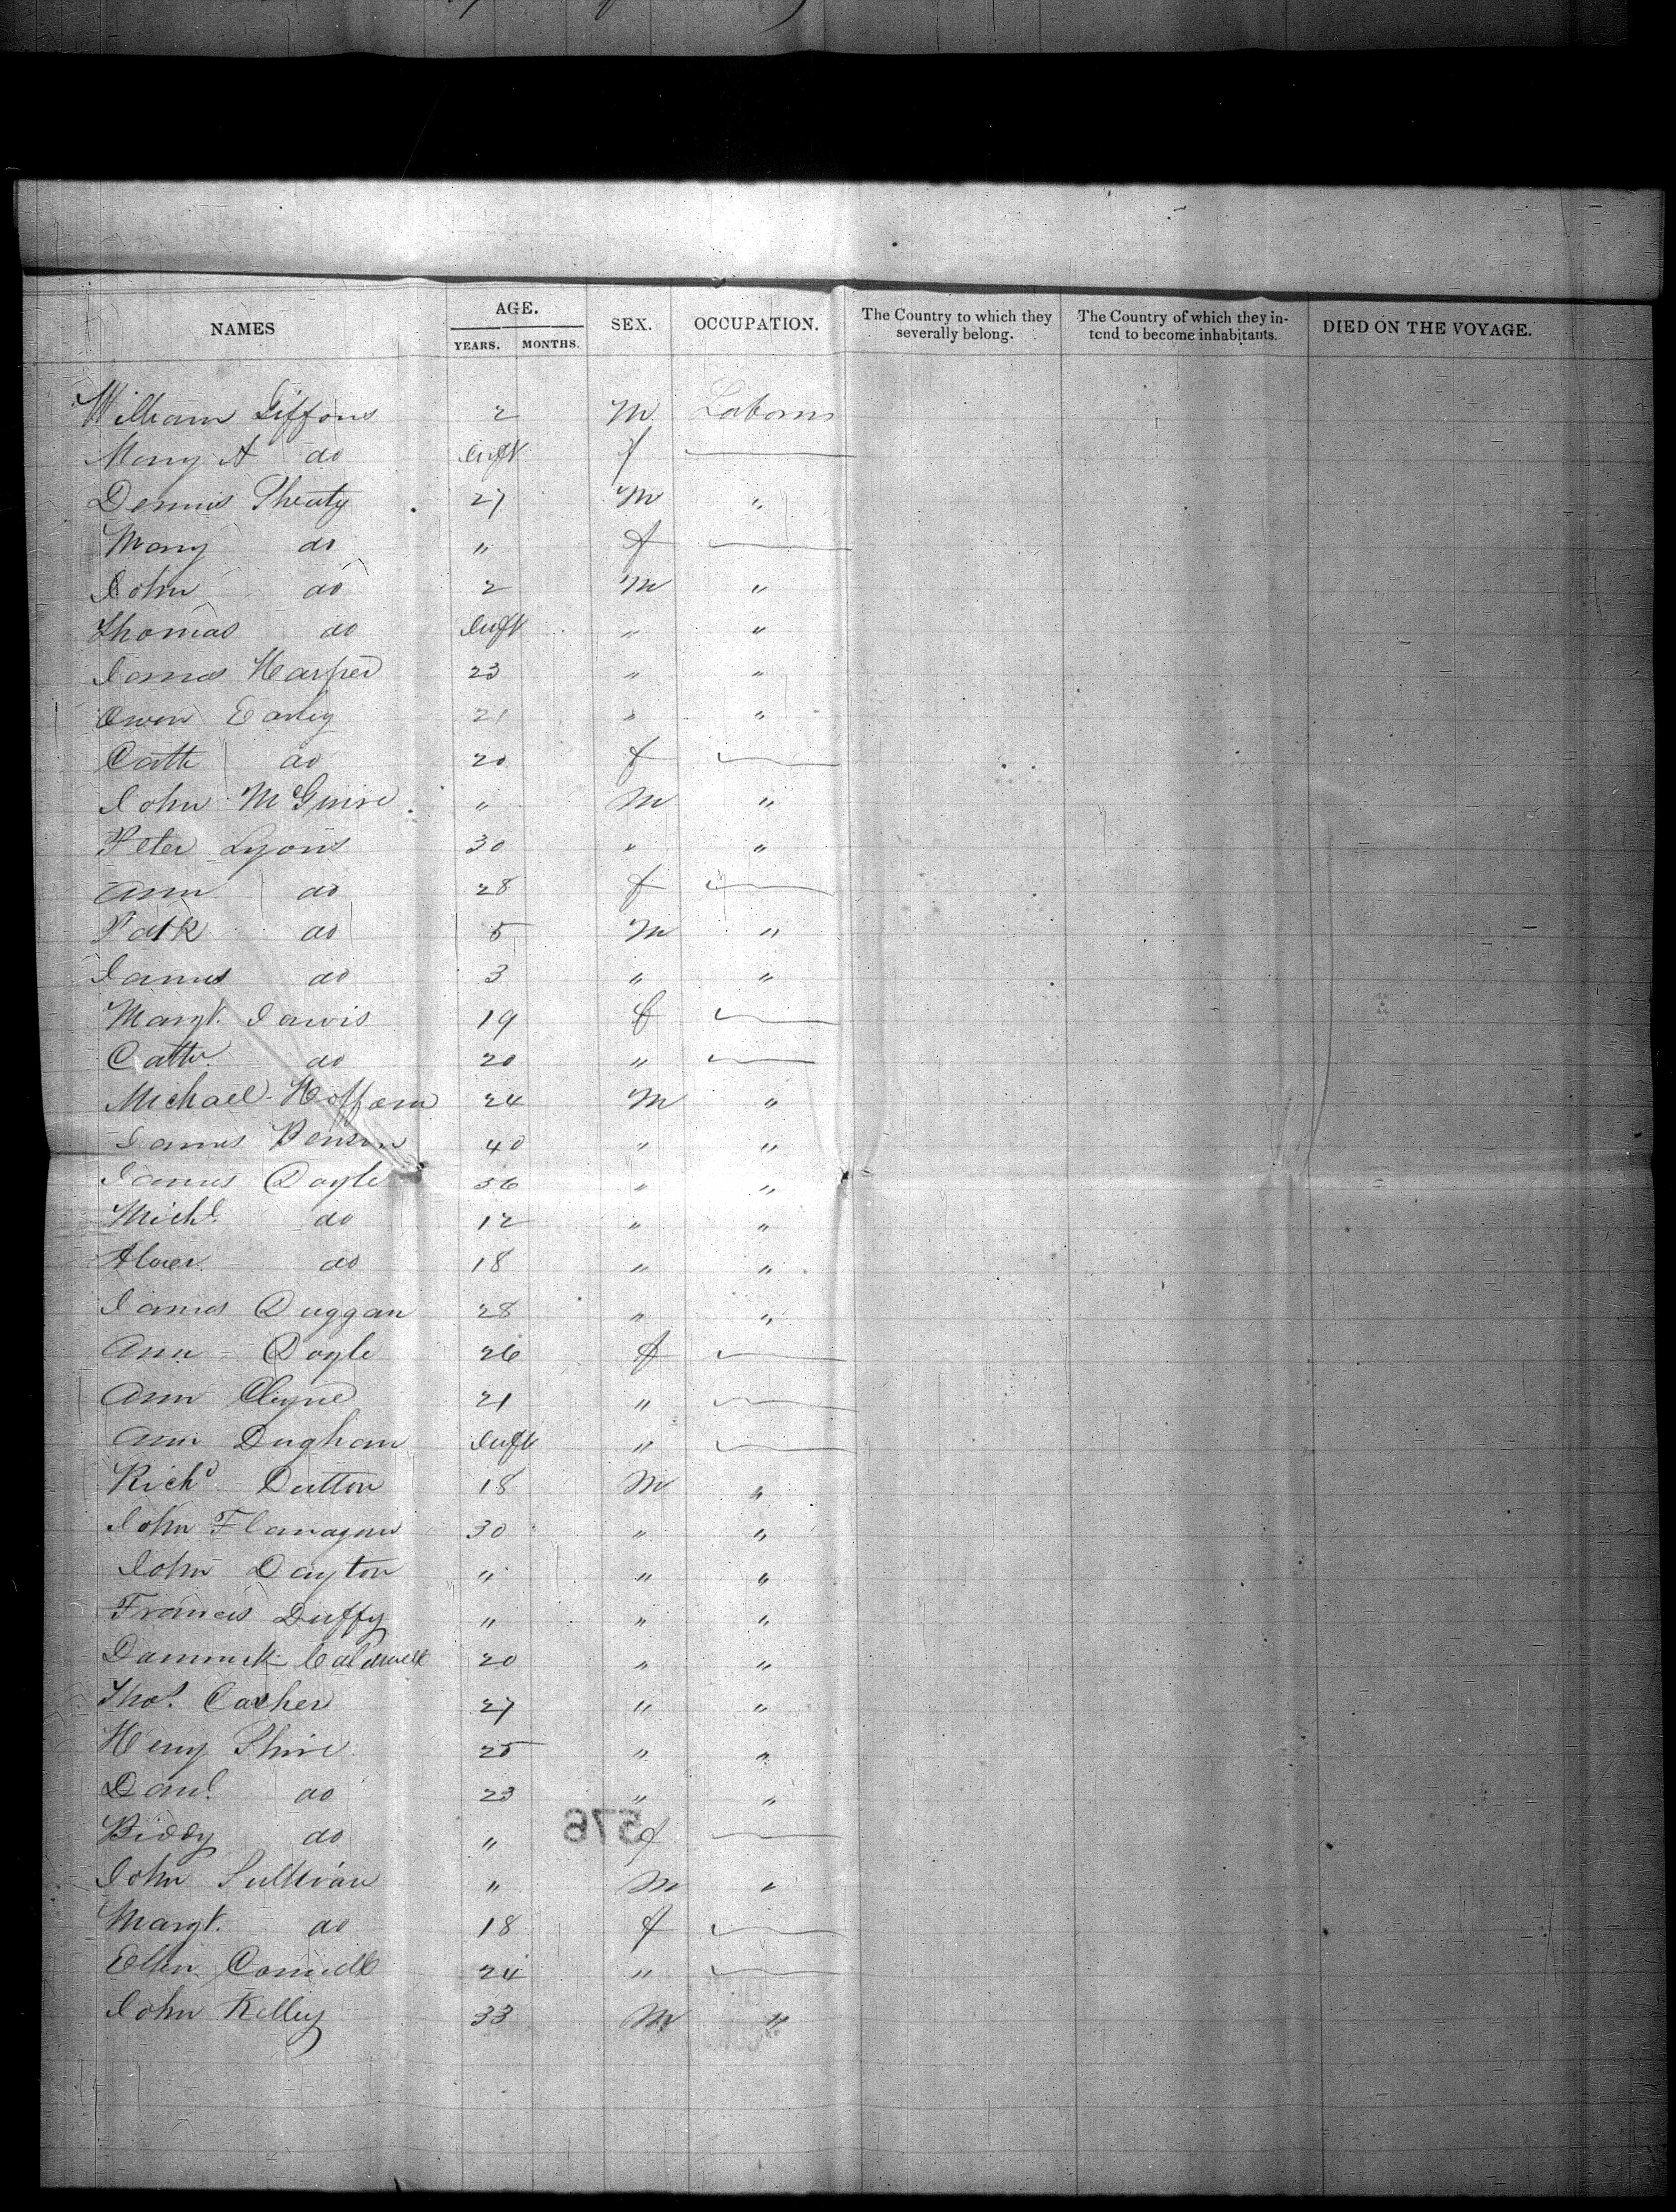 NAMES AGE. YEARS. MONTHS. SEX. OCCUPATION. The Country to which they severally belong. The Country of which they intend to become inhabitants. DIED ON THE VOYAGE.
William Giffons 2 M Laborer
Mary A do Inft f
Dennis Sheaty 27 M "
Mary do " f
John do 2 M "
Thomas do Inft " "
James Harper 23 " "
Owen Earley 21 " "
Cath do 20 f
John McGuire " M "
Peter Lyons 30 " "
Ann do 28 f
Patk do 5 M "
James do 3 " "
Margt. Jarvis 19 f
Cath do 20 "
Michael Hoffarn 24 M "
James Benson 40 " "
James Doyle 56 " "
Michl. do 12 " "
do 18 " "
James Duggan 28 " "
Ann Doyle 26 f
Ann Clyne 21 "
Ann Dugham Inft "
Richd Dutton 18 M "
John Flanagan 30 " "
John Dayton " " "
Francis Duffy " " "
Dominick Caldwell 20 " "
Thos. Casher 27 " "
Henry Shire 25 " "
Danl. do 23 " "
576
Biddy do " f
John Sullivan " M "
Margt. do 18 f
Ellen Connell 24 "
John Kelley 33 M "